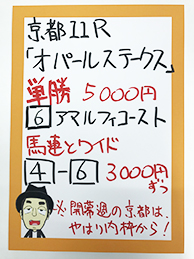 京都11R
「オパールステークス」
単勝 5000円
6 アマルフィコースト
馬連とワイド
4-6 3000円
ずつ
※開幕週の京都は、
やはり内枠から!